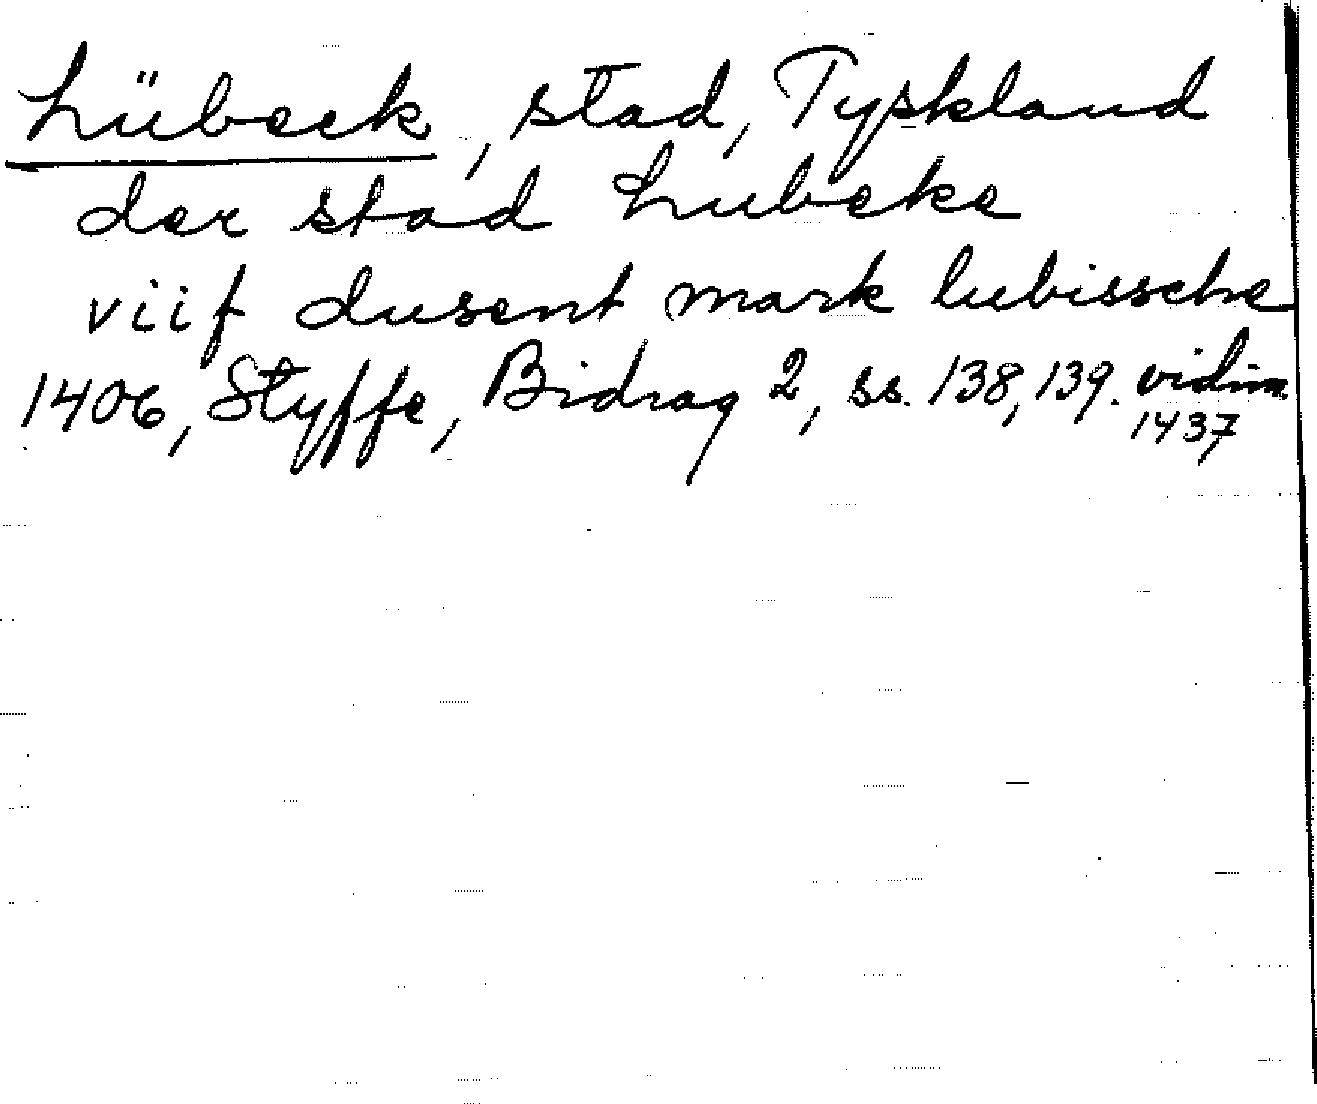 Lübeck, stad, Tyskland
der stad Lubeke
viif dusent mark lubissche
1406, Styffe, Bidrag 2, ss. 138, 139. vidim.
1437